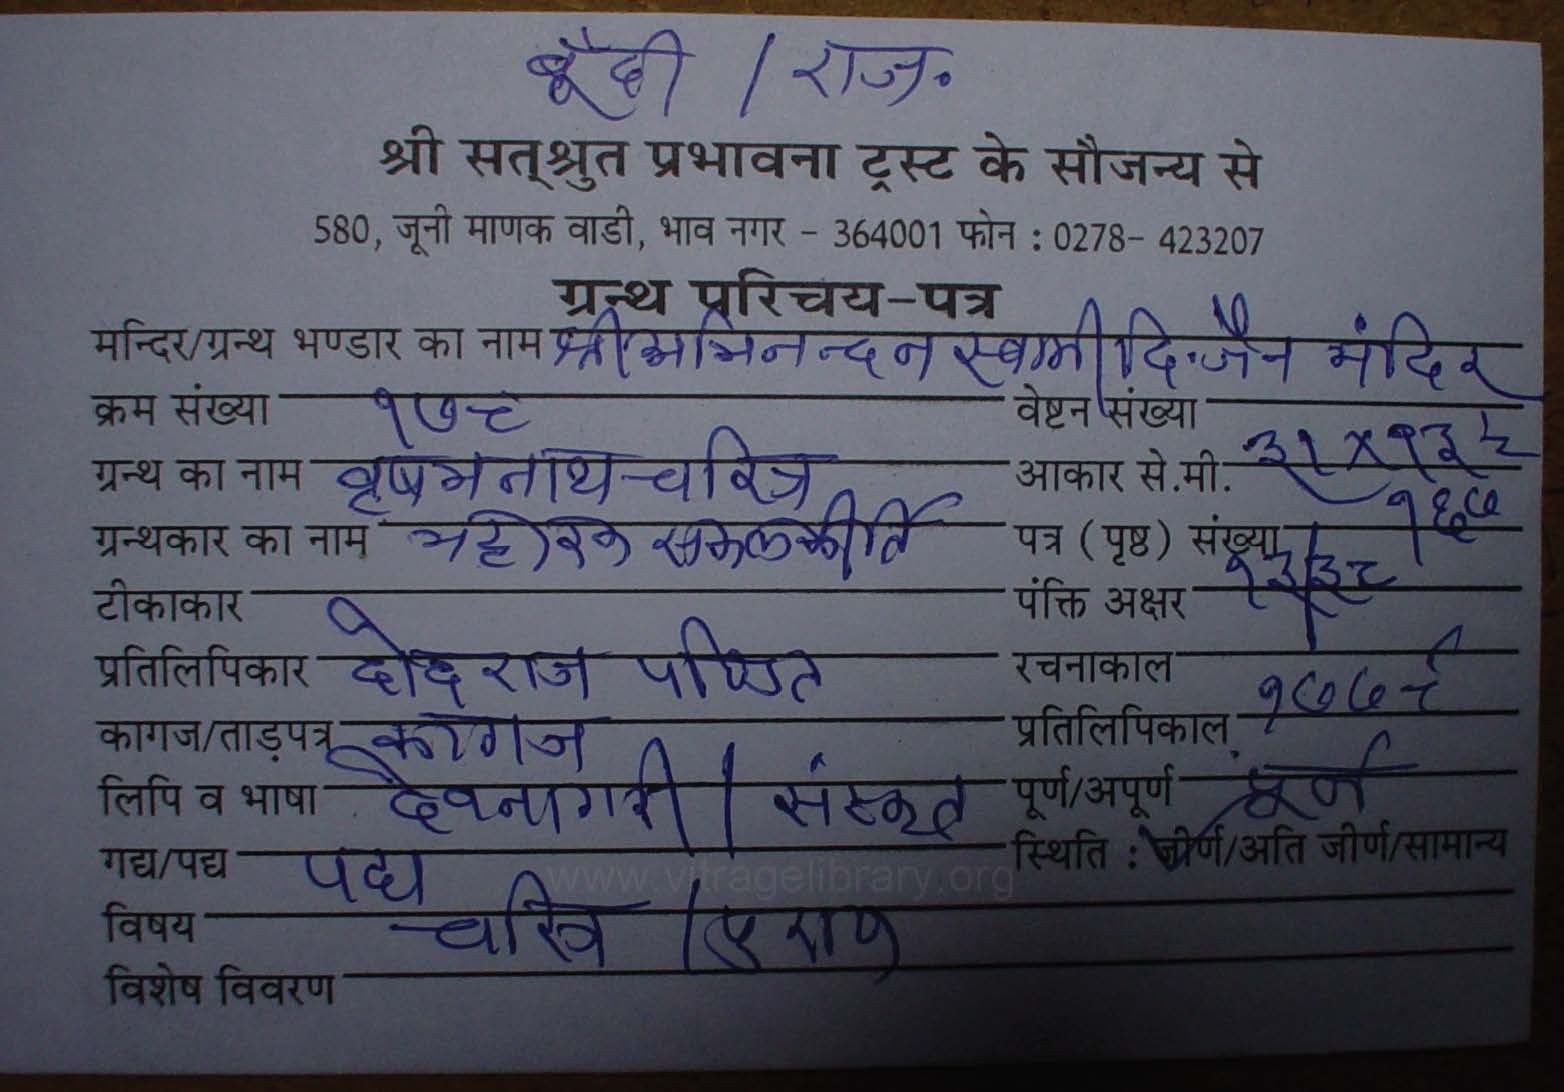 बूँदी / राज.
श्री सत्श्रुत प्रभावना ट्रस्ट के सौजन्य से
580, जूनी माणक वाडी, भाव नगर - 364001 फोन : 0278- 423207
ग्रन्थ परिचय-पत्र
मन्दिर/ग्रन्थ भण्डार का नाम श्री अभिनन्दन स्वामी दि.जैन मंदिर
क्रम संख्या १७८ वेष्टन संख्या
ग्रन्थ का नाम वृषभनाथ चरित्र आकार से.मी. ३१ x १३
ग्रन्थकार का नाम भट्टारक सकलकीर्ति पत्र (पृष्ठ) संख्या १६७
टीकाकार पंक्ति अक्षर
प्रतिलिपिकार राज पण्डित रचनाकाल
कागज/ताड़पत्र कागज प्रतिलिपिकाल
लिपि व भाषा देवनागरी / संस्कृत पूर्ण/अपूर्ण पूर्ण
गद्य/पद्य पद्य स्थिति : जीर्ण/अति जीर्ण/सामान्य
www.vitragelibrary.org
विषय चरित्र / पुराण
विशेष विवरण